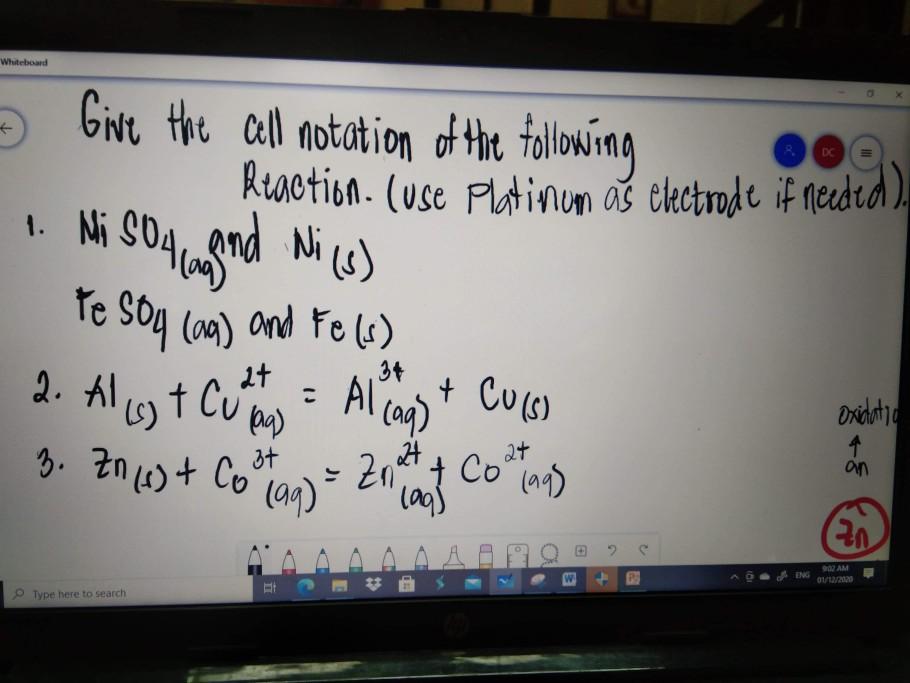 Whiteboard
Give the cell notation of the following
Reaction. (use Platinum as electrode if needed).
DC
1. NiSO4(aq) and Ni(s)
FeSO4(aq) and Fe(s)
2. Al(s) + Cu²⁺(aq) = Al³⁺(aq) + Cu(s)
3. Zn(s) + Co³⁺(aq) = Zn²⁺(aq) + Co²⁺(aq)
↑
an
Zn
Type here to search
ENG
9:02 AM
01/12/2020
hp